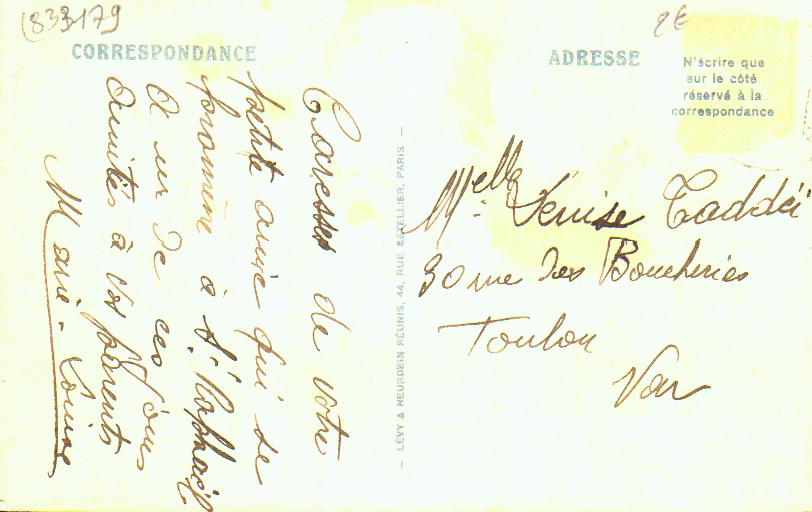 (833179
2€
CORRESPONDANCE
ADRESSE
N'écrire que
sur le côté
réservé à la
correspondance
Caresses de votre
petite amie qui se
promène à St. Raphaël
A un de ces jours
Amitiés à vos parents
Marie-Louise
— LÉVY & NEURDEIN RÉUNIS, 44, RUE LETELLIER, PARIS —
Melle Denise Taddéi
30 rue des Boucheries
Toulon
Var